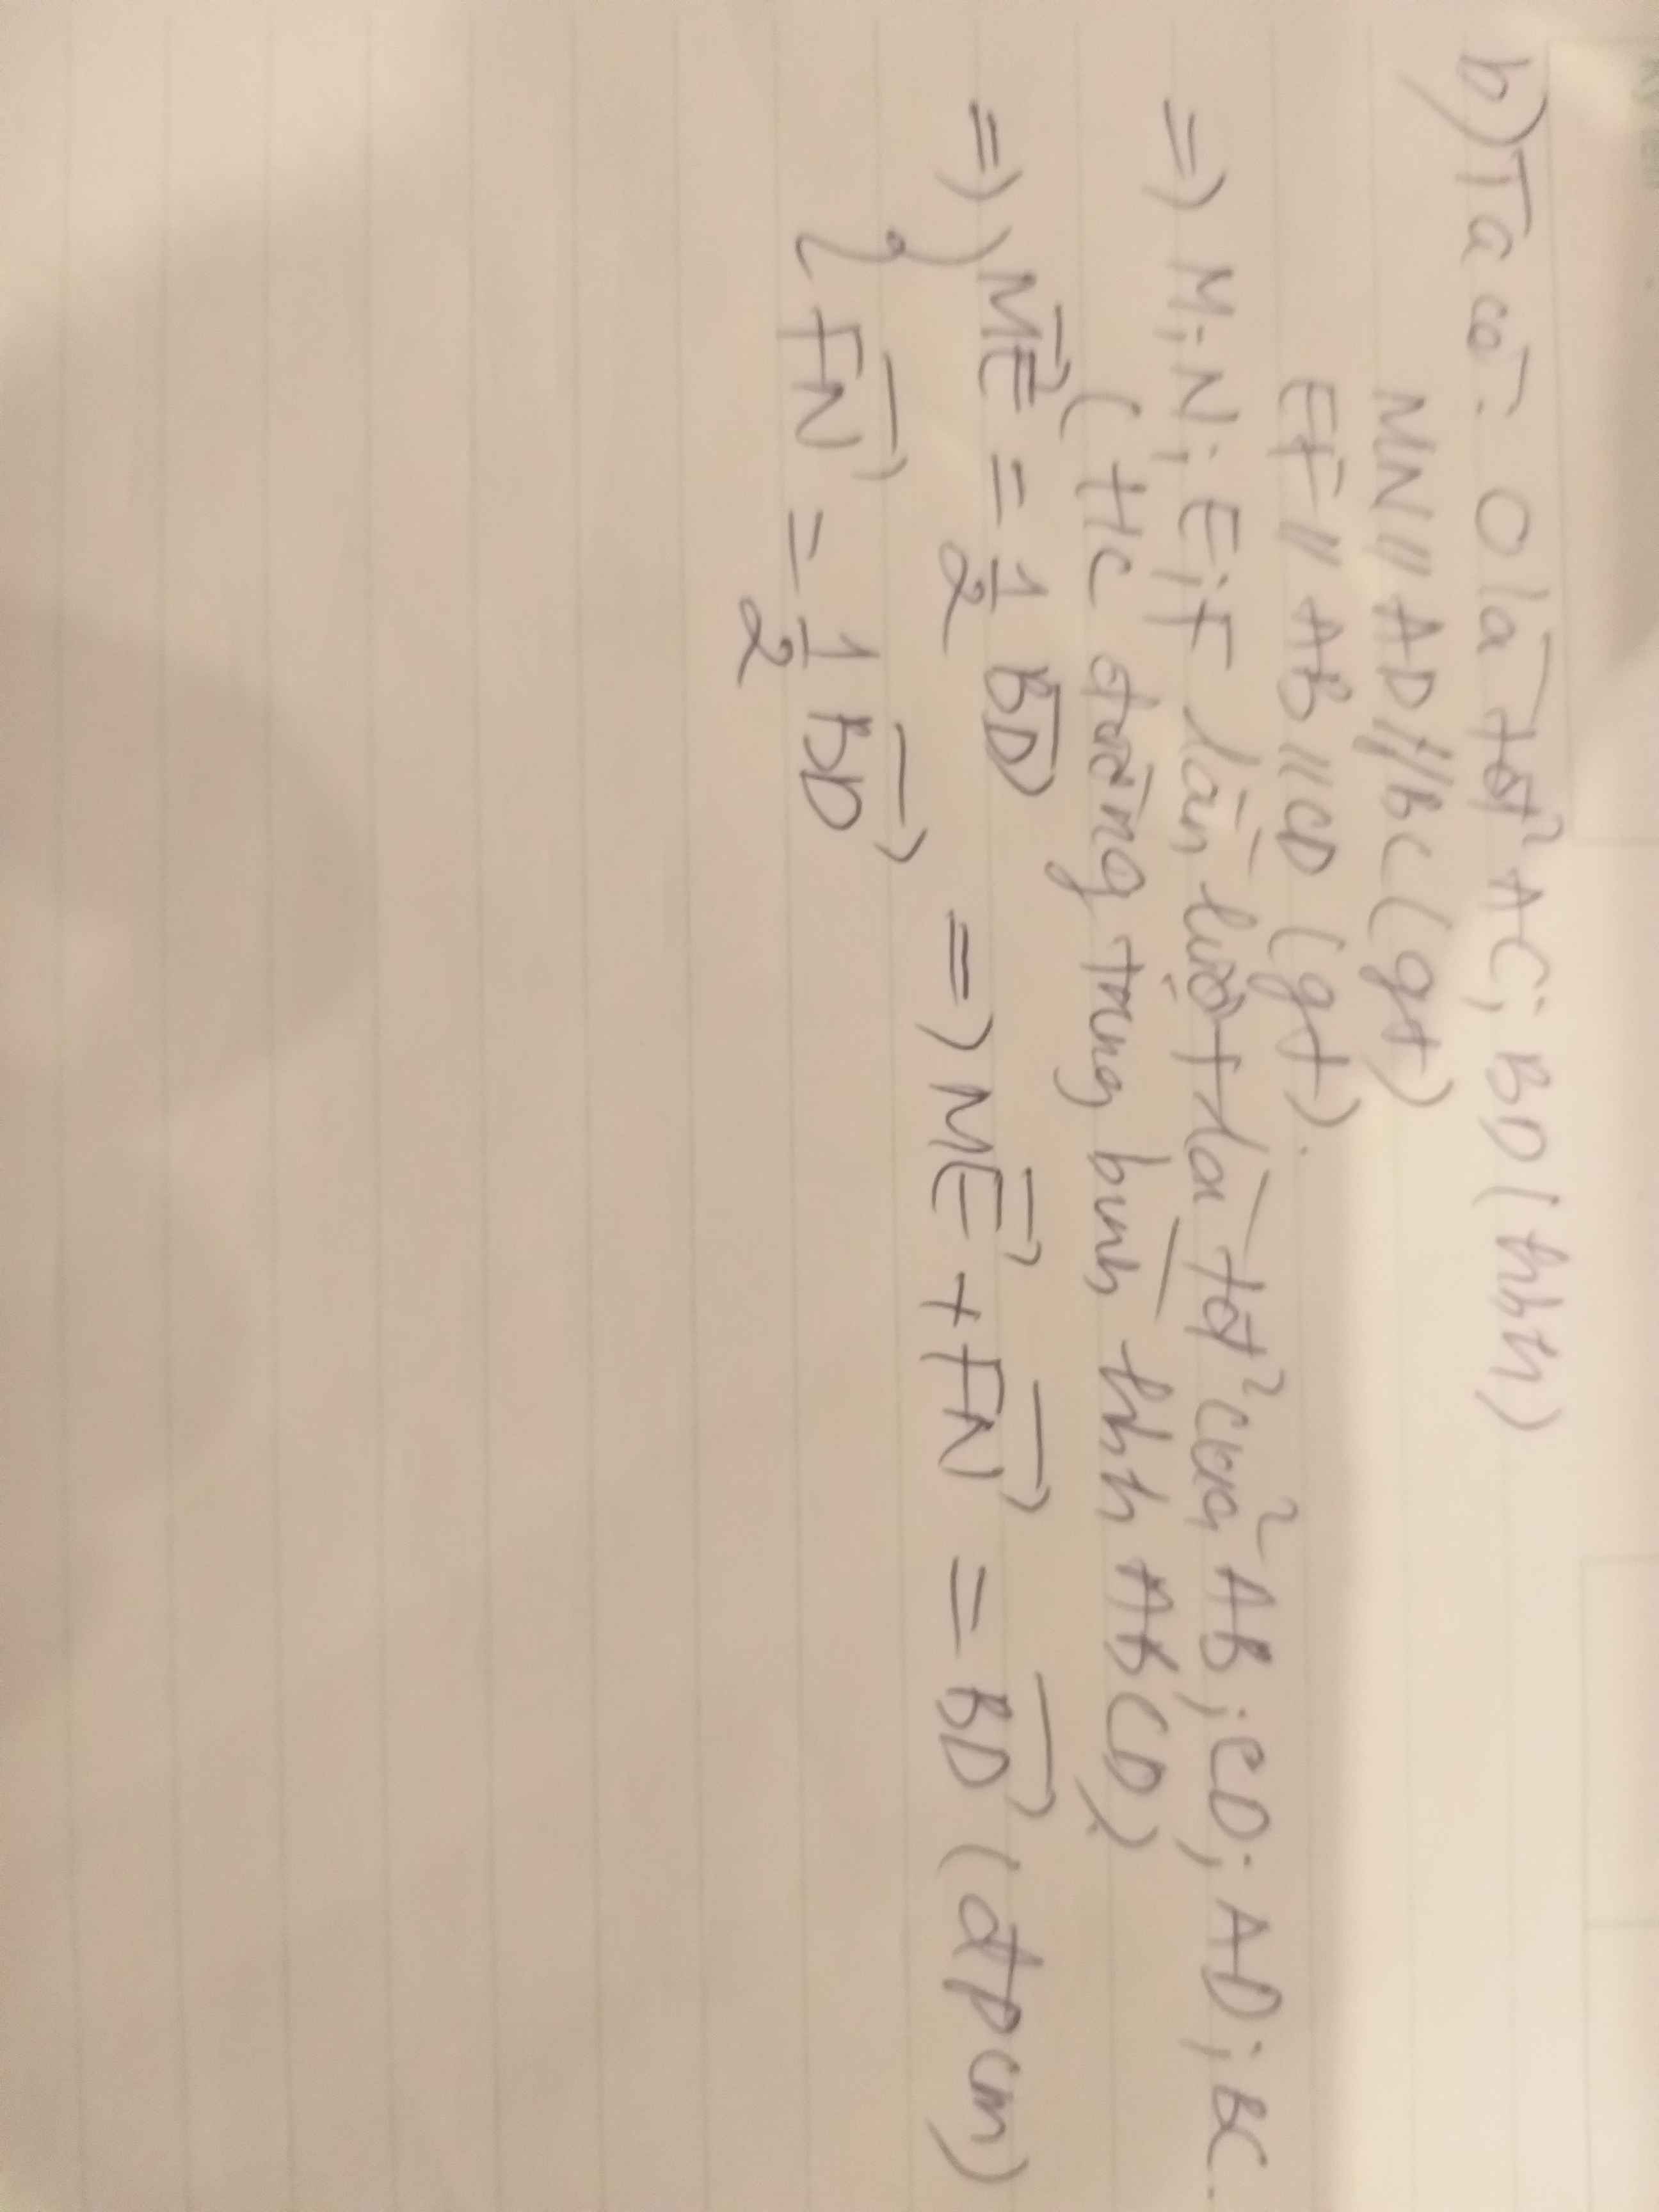 b) Ta có: O là tđ² AC; BD (hbh)
MN // AD // BC (gt)
EF // AB // CD (gt).
=> M; N; E; F lần lượt là tđ² của AB; CD; AD; BC.
(HC đường trung bình hbh ABCD)
=> { ME = 1/2 BD
FN = 1/2 BD => ME + FN = BD (đpcm)